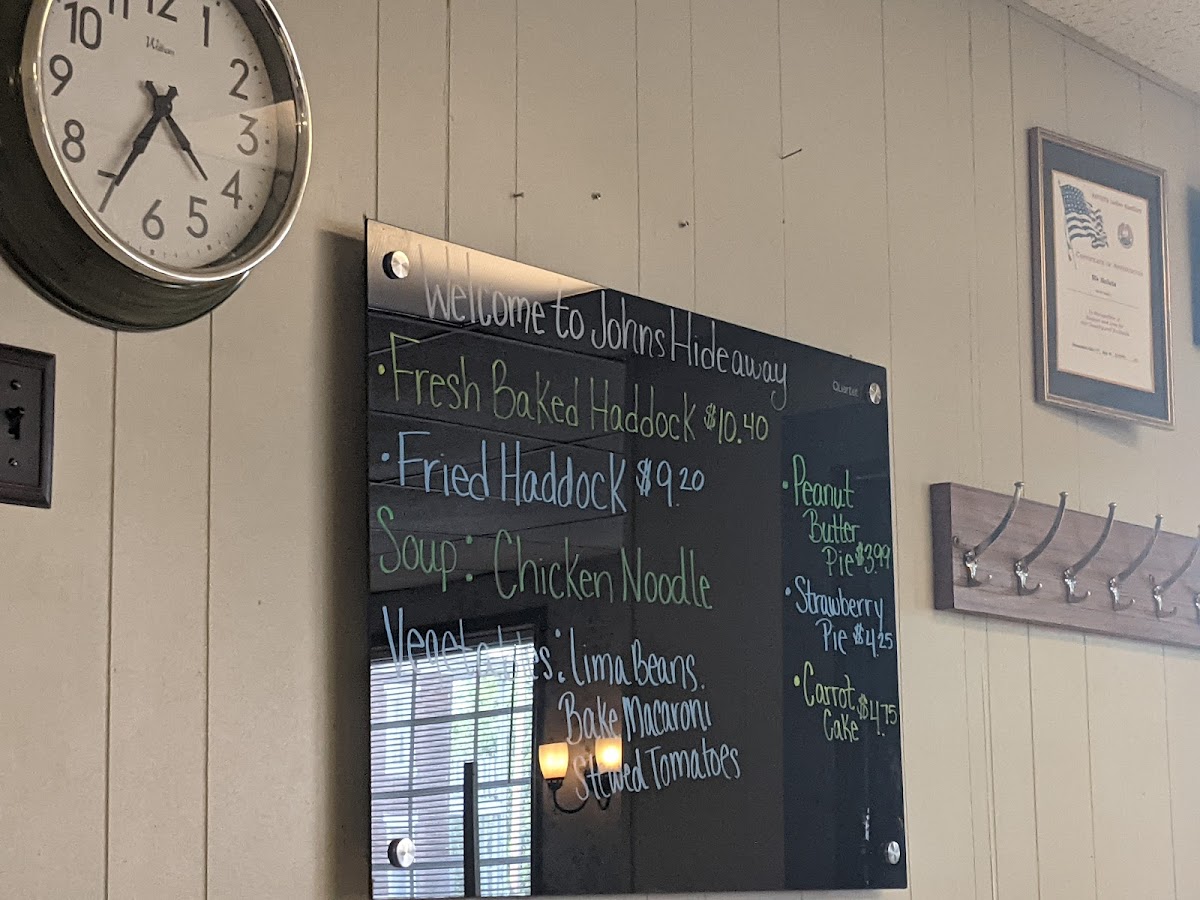 11 12 1
10 2
9 3
8 4
6 5
Welcome to Johns Hideaway
Quartet
•Fresh Baked Haddock $10.40
•Fried Haddock $9.20
Soup: Chicken Noodle
Vegetables: Lima Beans.
Bake Macaroni
Stewed Tomatoes
•Peanut
Butter
Pie $3.99
•Strawberry
Pie $4.25
•Carrot
Cake $4.75